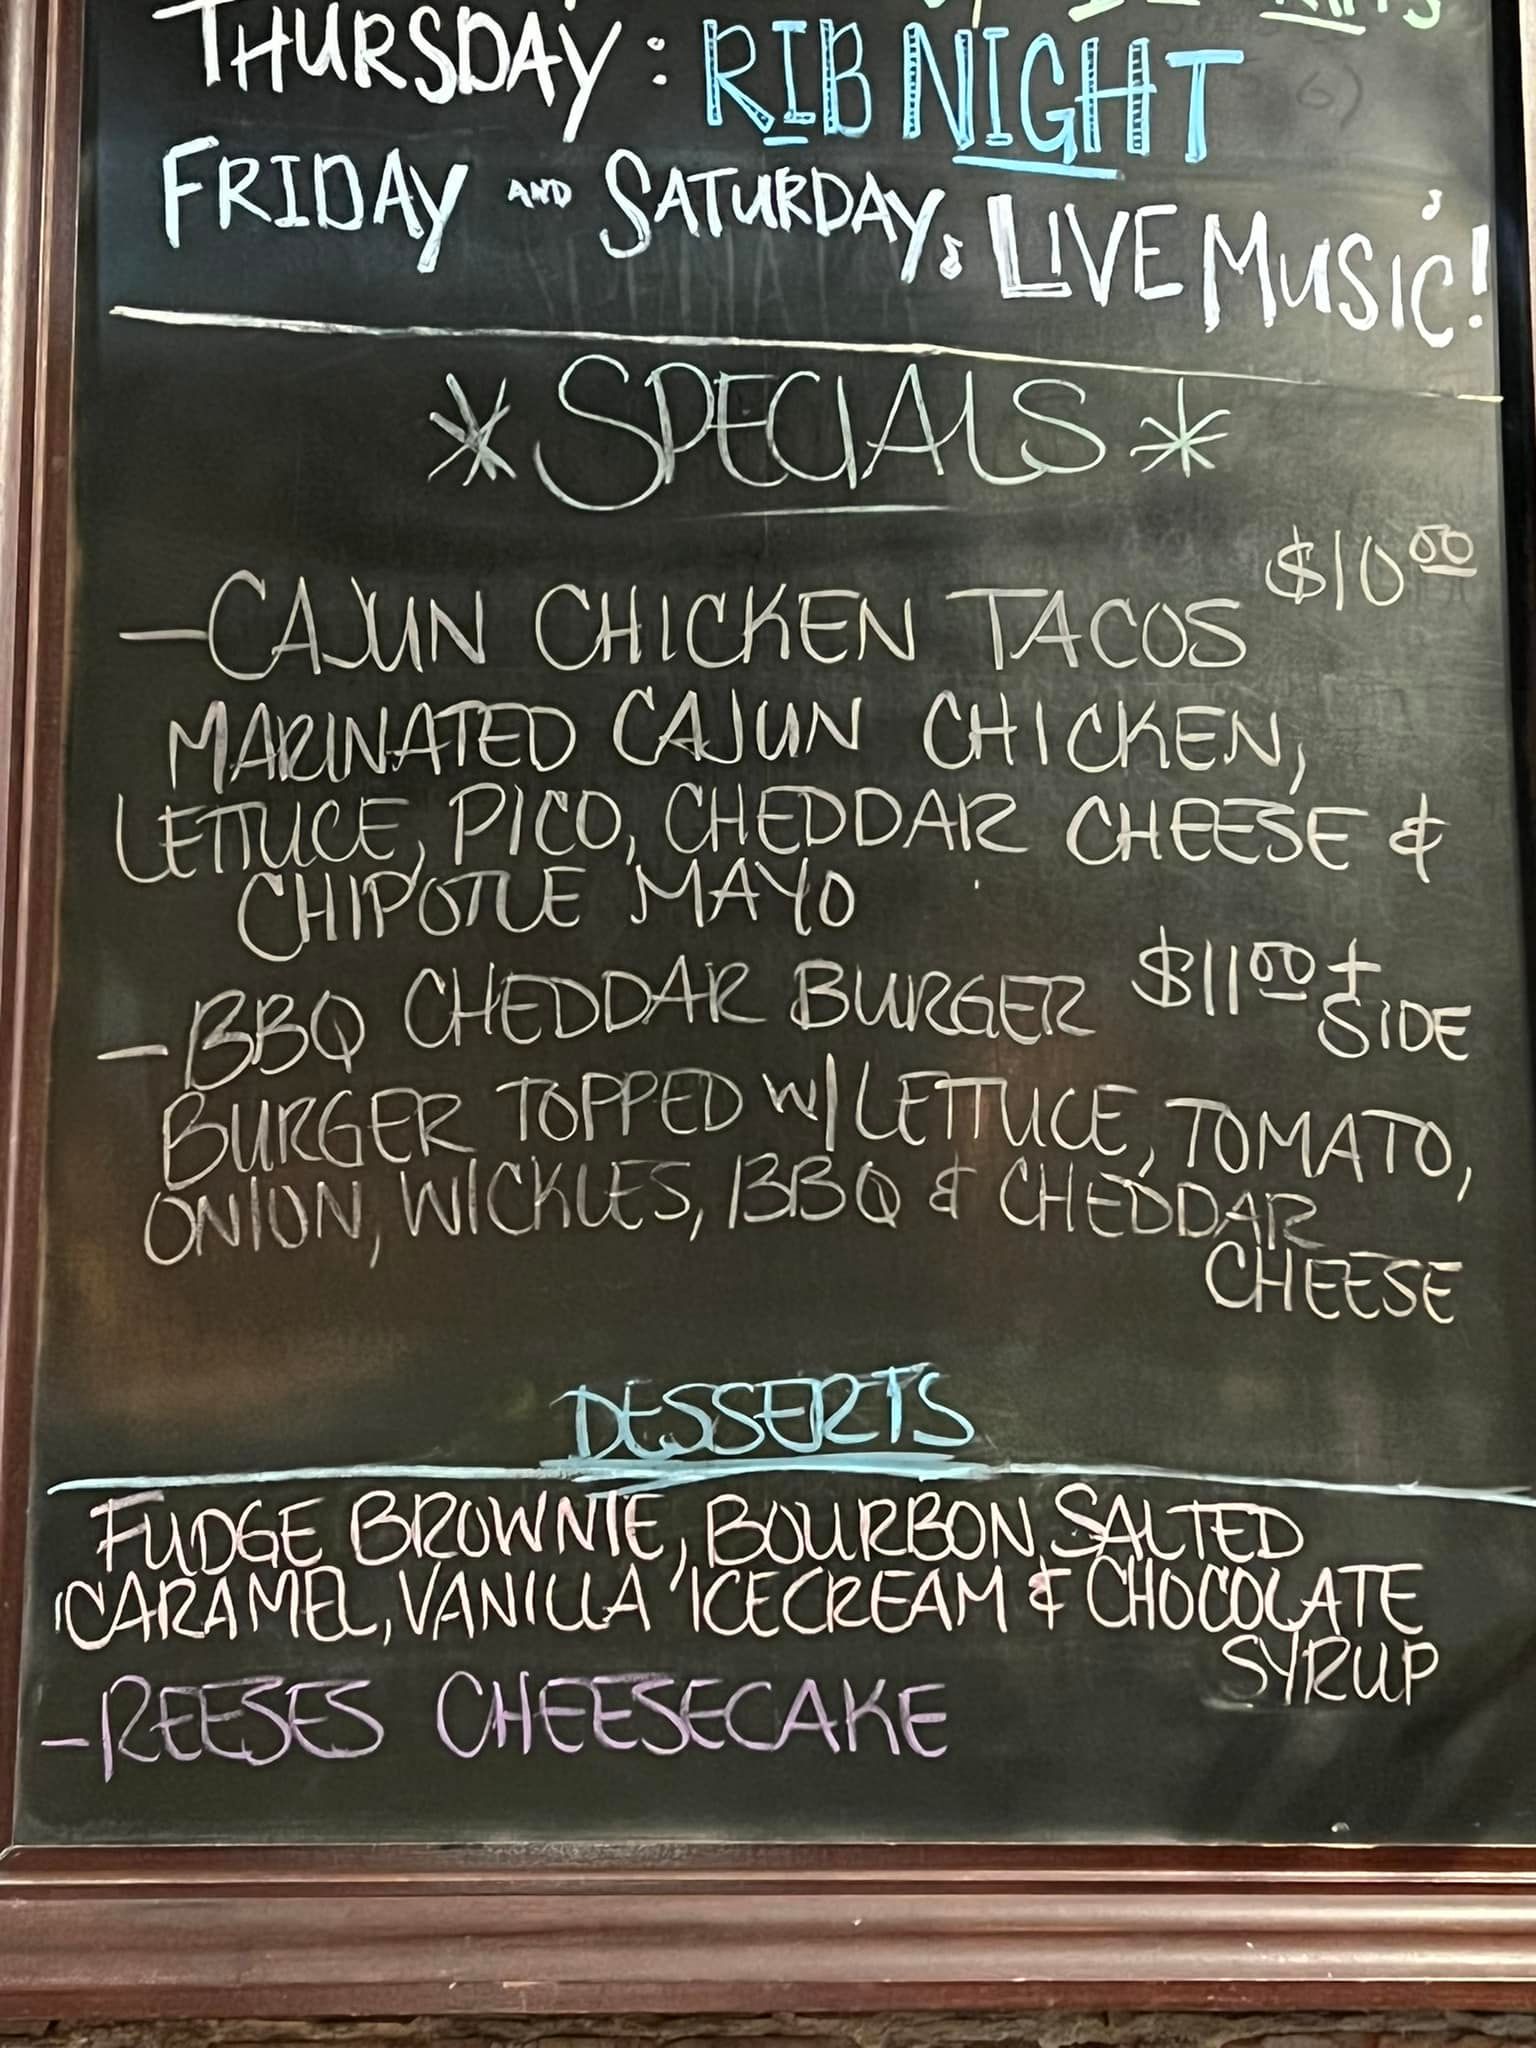 THURSDAY: RIB NIGHT
FRIDAY AND SATURDAY, LIVE MUSIC!
* SPECIALS *
- CAJUN CHICKEN TACOS $10.00
MARINATED CAJUN CHICKEN,
LETTUCE, PICO, CHEDDAR CHEESE &
CHIPOTLE MAYO
- BBQ CHEDDAR BURGER $11.00 +
SIDE
BURGER TOPPED W/ LETTUCE, TOMATO,
ONION, WICKLES, BBQ & CHEDDAR
CHEESE
DESSERTS
FUDGE BROWNIE, BOURBON SALTED
CARAMEL, VANILLA ICECREAM & CHOCOLATE
SYRUP
- REESES CHEESECAKE